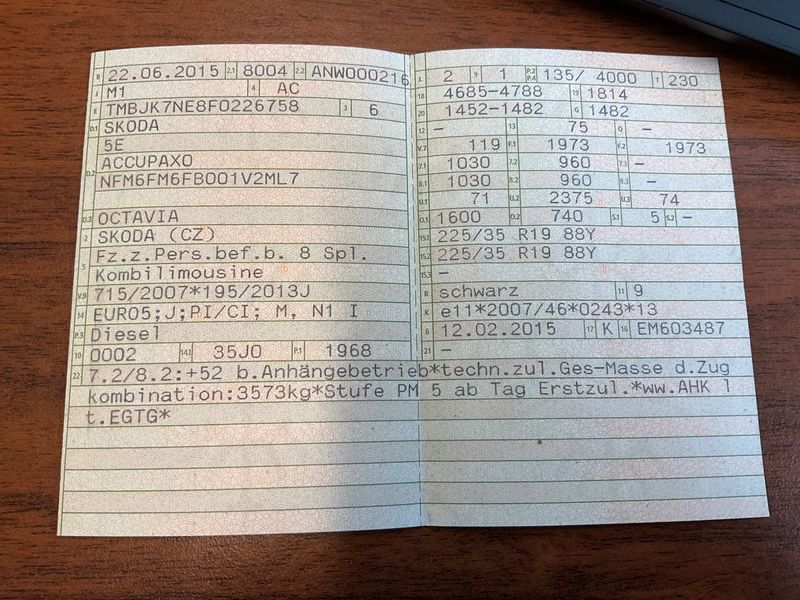 B 22.06.2015 2.1 8004 2.2 ANW000216
J M1 4 AC
E TMBJK7NE8F0226758 3 6
D.1 SKODA
5E
D.2 ACCUPAX0
NFM6FM6FB001V2ML7
D.3 OCTAVIA
2 SKODA (CZ)
5 Fz.z.Pers.bef.b. 8 Spl.
Kombilimousine
V.9 715/2007*195/2013J
14 EURO5;J;PI/CI; M, N1 I
P.3 Diesel
10 0002 14.1 35J0 P.1 1968
22 7.2/8.2:+52 b.Anhängebetrieb*techn.zul.Ges-Masse d.Zug
kombination:3573kg*Stufe PM 5 ab Tag Erstzul.*ww.AHK l
t.EGTG*
L 2 9 1 P.2 P.4 135/ 4000 T 230
18 4685-4788 19 1814
20 1452-1482 G 1482
12 – 13 75 Q –
V.7 119 F.1 1973 F.2 1973
7.1 1030 7.2 960 7.3 –
8.1 1030 8.2 960 8.3 –
U.1 71 U.2 2375 U.3 74
O.1 1600 O.2 740 S.1 5 S.2 –
15.1 225/35 R19 88Y
15.2 225/35 R19 88Y
15.3 –
R schwarz 11 9
K e11*2007/46*0243*13
6 12.02.2015 17 K 16 EM603487
21 –